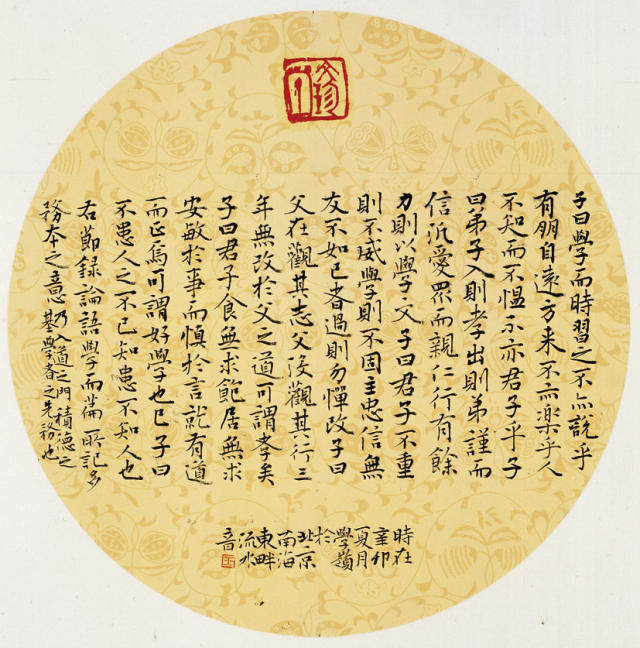 子曰學而時習之不亦說乎
有朋自遠方来不亦樂乎人
不知而不愠不亦君子乎子
曰弟子入則孝出則弟謹而
信汎愛眾而親仁行有餘
力則以學文子曰君子不重
則不威學則不固主忠信無
友不如己者過則勿憚改子曰
父在觀其志父没觀其行三
年無改於父之道可謂孝矣
子曰君子食無求飽居無求
安敏於事而慎於言就有道
而正焉可謂好學也已子曰
不患人之不己知患不知人也
右節録論語學而篇所記多
務本之意乃入道之門積德之
基學者之先務也
時在
辛卯
夏月
學嶺
於
北京
南海
東畔
流水
音